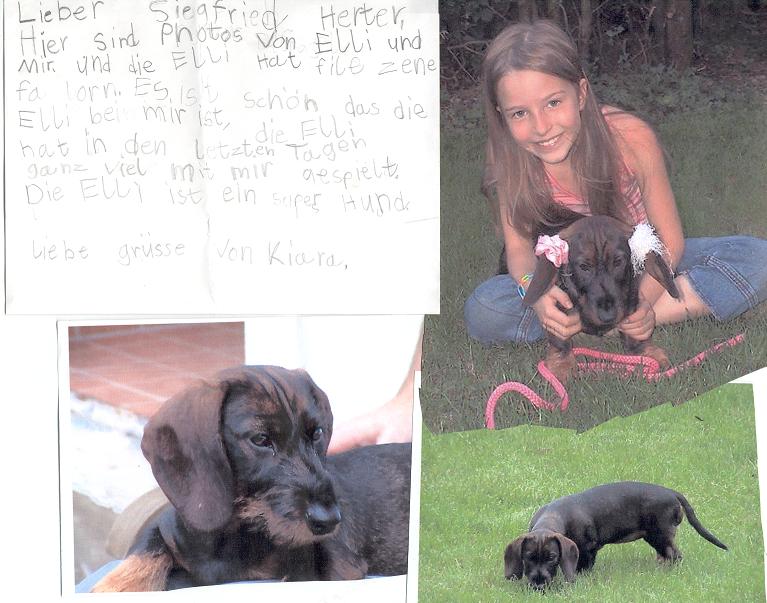 Lieber Siegfried Herter,
Hier sind Photos von Elli und
mir und die Elli hat file zene
fa lorn. Es ist schön das die
Elli bei mir ist, die Elli
hat in den letzten Tagen
ganz viel mit mir gespielt.
Die Elli ist ein super Hund.
Liebe grüsse von Kiara.